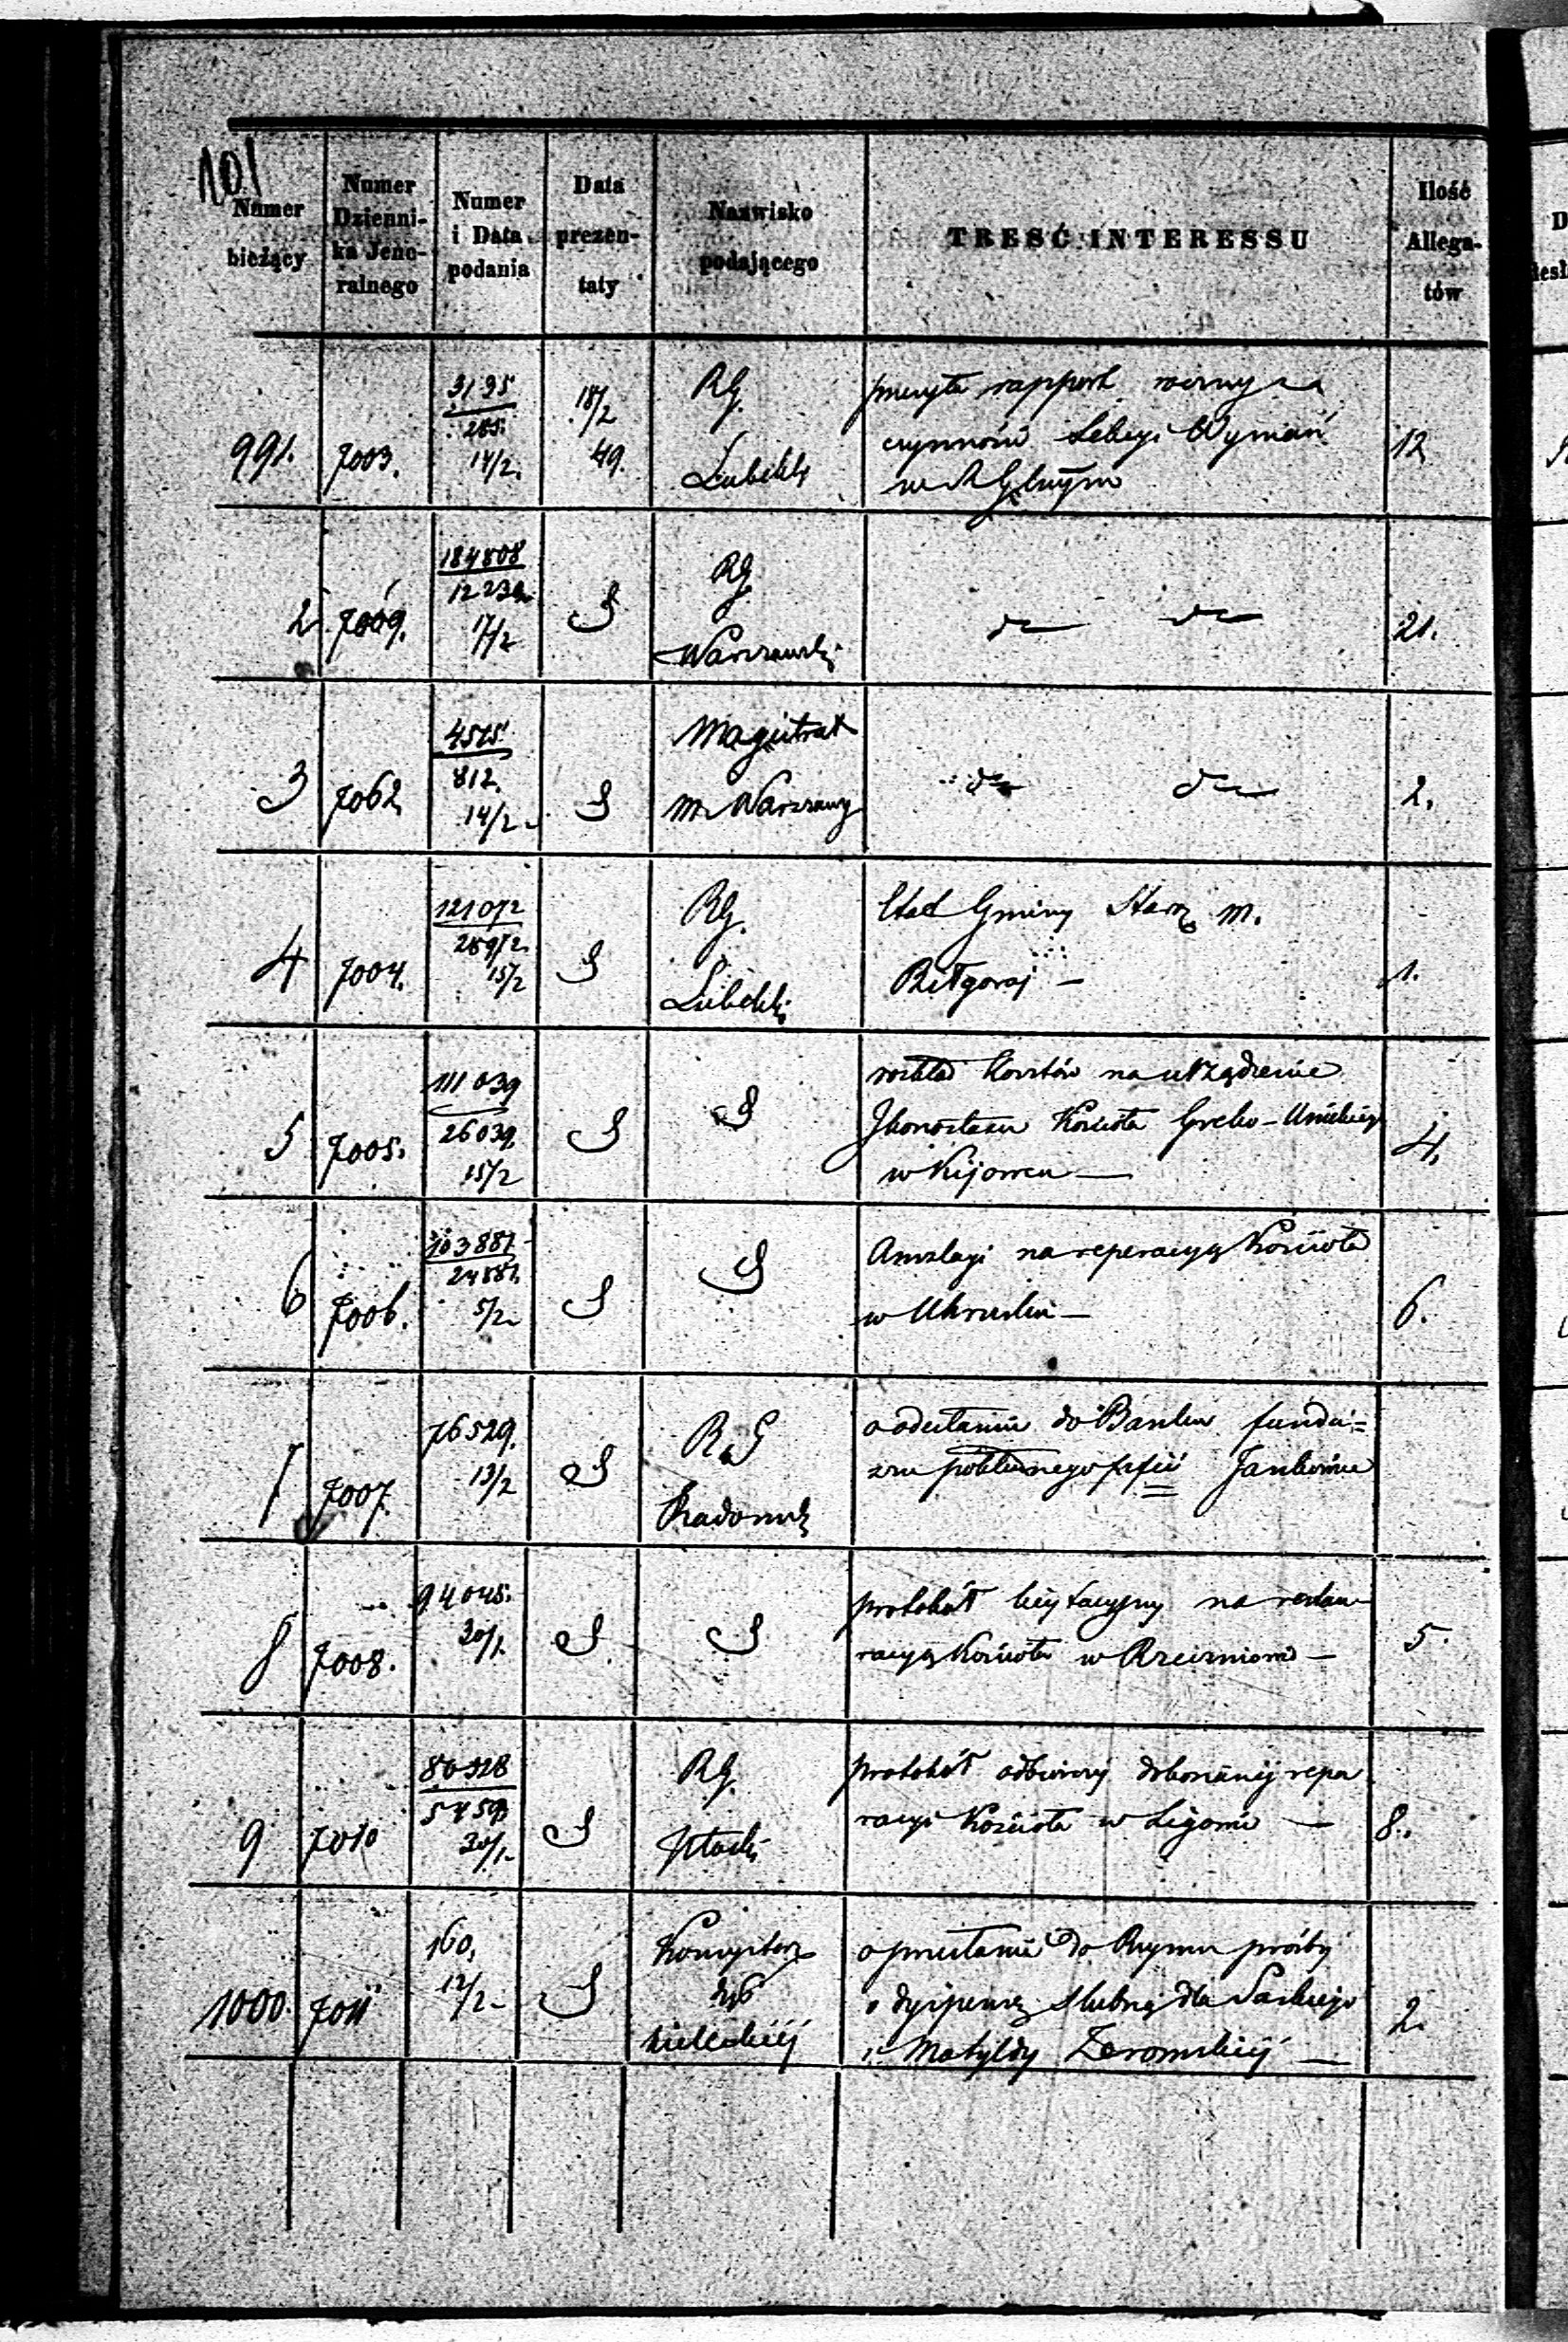 101
Numer bieżący
Numer Dzienni-ka Jene-ralnego
Numer i Data podania
Data prezen-taty
Nazwisko podającego
TREŚĆ INTERESSU
Ilość Allega-tów
991. 7003. 3195 285. 14/2. 18/2 49. RG. Lubelski
rapport roczny za
czynności
12
2 7009. 184808 17/2 RG Warszawski
21.
3 7062 4515 812. 14/2 Magistrat m. Warszawy
2.
4 7004. 121072 15/2 RG. Lubelski
Etat Gminy Starz. m.
Biłgoraj —
1.
5 7005. 111039 26039. 15/2
rozkład kosztów na urządzenie
Ikonostasu Kościoła Grecko-Unickiego
w Kijowcu —
4.
6 7006. 103887 24887. 5/2
Anszlagi na reperacyą Kościoła
w Uhrusku —
6.
7 7007. 76529. 13/2 R.G Radomski
o odesłanie do Banku fundu=
szu
8 7008. 94045. 30/1.
protokół licytacyjny na restau-
racyą Kościoła w
5.
9 7010 RG. Płocki 30/1.
protokół odbiorczy dokonanéj repa
racyi Kościoła w Ligowie —
8.
1000. 7011 160. 12/2 Konsystorz kieleckiéj
o przesłanie do Rzymu prośby
o dyspensę ślubną dla
i Matyldy Żeromskiéj —
2.